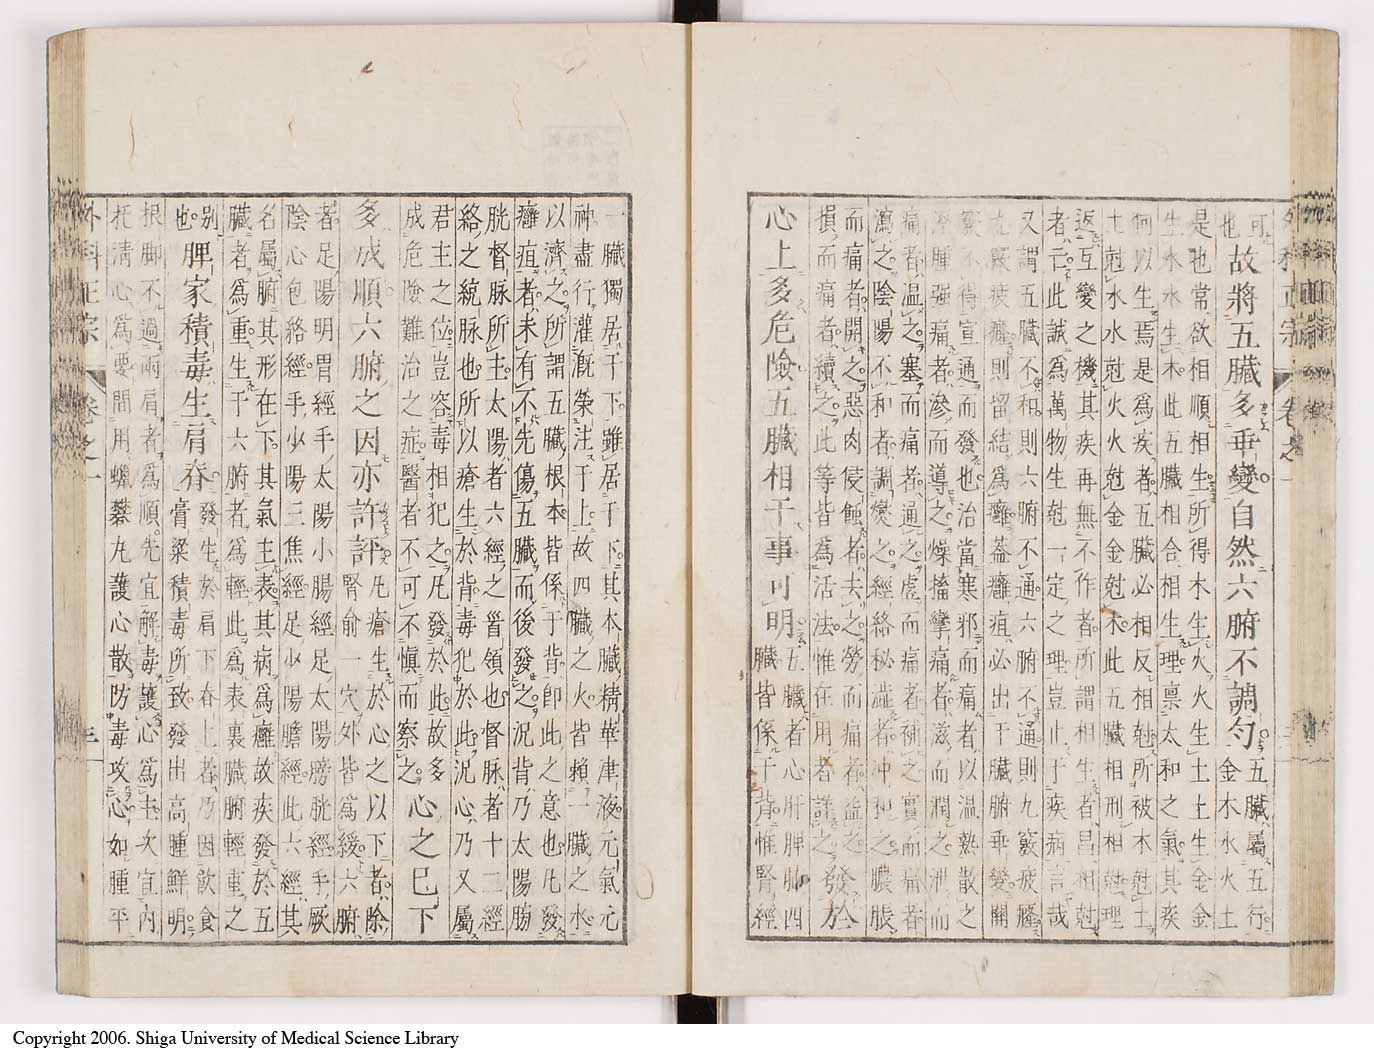 可也故將五臟多乖變自然六腑不調勻五臟屬五行金木水火土
是也常欲相順相生所得木生火火生土土生金金
生水水生木此五臟相合相生理禀太和之氣其疾
何以生焉是爲疾者五臟必相反相尅所被木尅土
土尅水水尅火火尅金金尅木此五臟相刑相尅理
返互變之機其疾再無不作者所謂相生者昌相尅
者亡此誠爲萬物生尅一定之理豈止于疾病言哉
又謂五臟不和則六腑不通六腑不通則九竅疲癃
九竅疲癃則留結爲癰蓋癰疽必出于臟腑乖變開
竅不得宣通而發也治當寒邪而痛者以温熱散之
濕腫強痛者滲而導之燥搐攣痛者滋而潤之泄而
痛者温之塞而痛者通之虛而痛者補之實而痛者
瀉之陰陽不和者調燮之經絡秘澁者冲和之膿脹
而痛者開之惡肉侵蝕者去之勞而痛者益之
損而痛者續之此等皆爲活法惟在用者詳之發於
心上多危險五臟相干事可明五臟者心肝脾肺四臟皆係于背惟腎經
一臟獨居于下雖居于下其本臟精華津液元氣元
神盡行灌漑榮注于上故四臟之火皆賴一臟之水
以濟之所謂五臟根本皆係于背卽此之意也凡發
癰疽者未有不先傷五臟而後發之況背乃太陽膀
胱督脉所主太陽者六經之首領也督脉者十二經
絡之統脉也所以瘡生於背毒犯於此況心乃又屬
君主之位豈容毒相犯之凡發於此故多
成危險難治之症醫者不可不愼而察之心之已下
多成順六腑之因亦許評凡瘡生於心之以下者除腎俞一穴外皆爲緩六腑
者足陽明胃經手太陽小腸經足太陽膀胱經手厥
陰心包絡經手少陽三焦經足少陽膽經此六經其
名屬腑其形在下其氣主表其病爲癰故疾發於五
臟者爲重生于六腑者爲輕此爲表裏臟腑輕重之
別也脾家積毒生肩脊發生於肩下脊上者乃因飲食膏粱積毒所致發出高腫鮮明
根脚不過兩肩者爲順先宜解毒護心爲主次宜内
托清心爲要間用蠟礬丸護心散防毒攻心如腫平
外科正宗 卷之一 三
外科正宗 卷之一